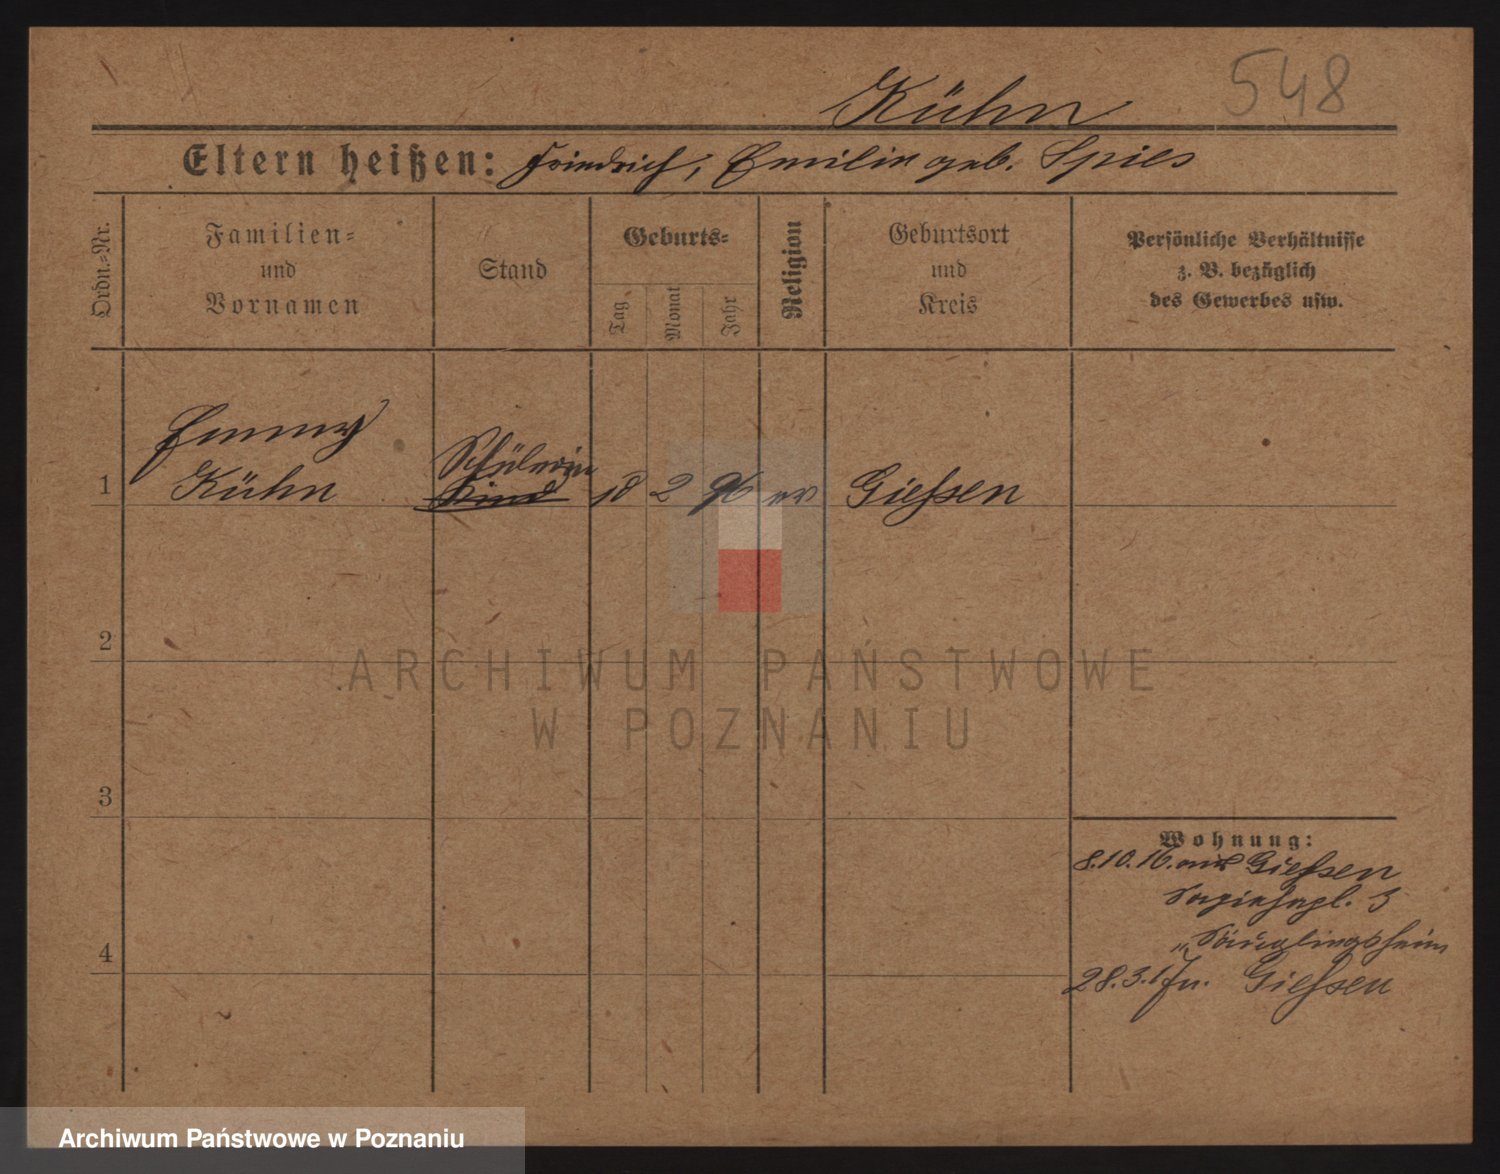 Kühn
548
Eltern heißen: Friedrich, Emilie geb. Spies
Ordn.-Nr.
Familien-
und
Vornamen
Stand
Geburts-
Tag
Monat
Jahr
Religion
Geburtsort
und
Kreis
Persönliche Verhältnisse
z. B. bezüglich
des Gewerbes usw.
Emmy
Schülerin
1 Kühn Kind 18 2 96 ev Giessen
2
ARCHIWUM PAŃSTWOWE
W POZNANIU
3
Wohnung:
8.10.16. aus Giessen
3
„Säuglingsheim
4
28.3.17 n. Giessen
Archiwum Państwowe w Poznaniu